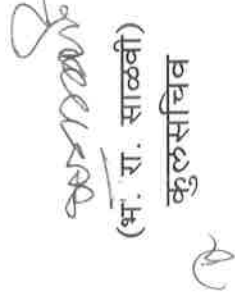 (भा. रा. साळवी)
कुलसचिव